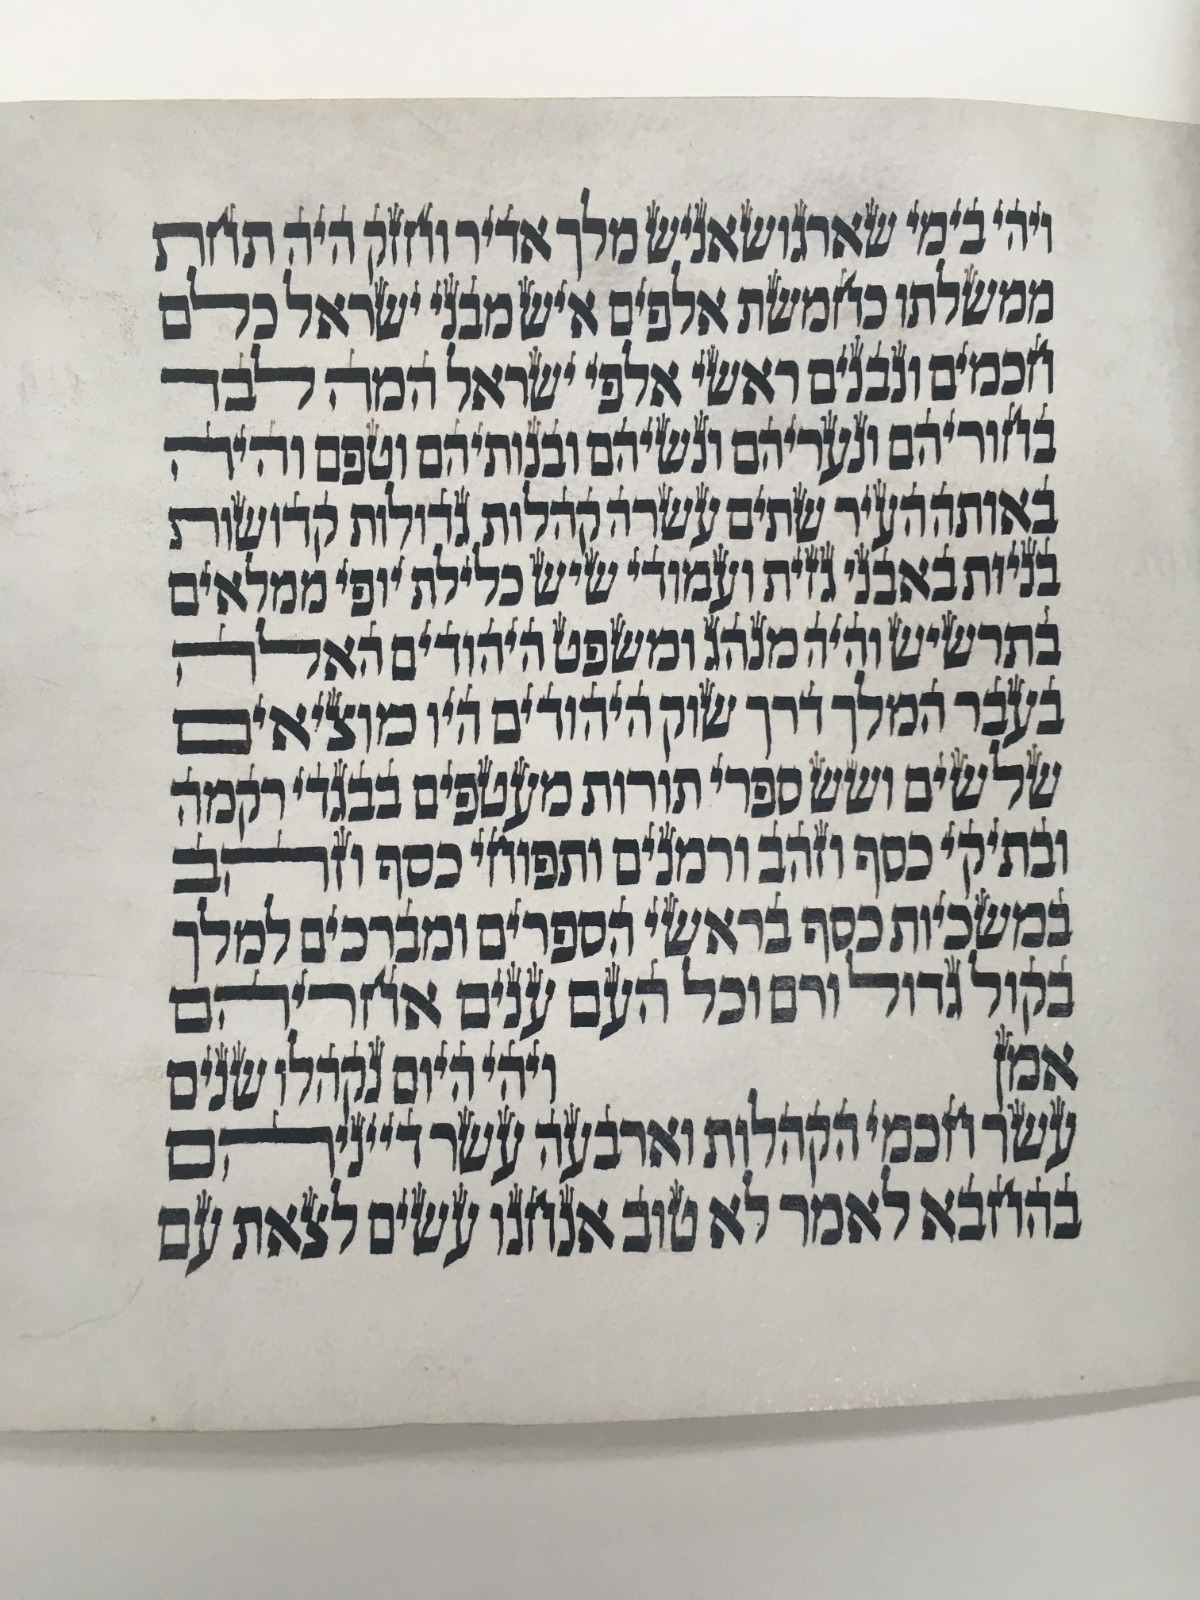 ויהי בימי שארגושאניש מלך אדיר וחזק היה תחת
ממשלתו כחמשת אלפים איש מבני ישראל כלם
חכמים ונבנים ראשי אלפי ישראל המה לבד
בחוריהם ונעריהם ונשיהם ובנותיהם וטפם והיה
באותההעיר שתים עשרה קהלות גדולות קדושות
בניות באבני גזית ועמודי שיש כלילת יופי ממלאים
בתרשיש והיה מנהג ומשפט היהודים האלה
בעבר המלך דרך שוק היהודים היו מוציאים
שלשים ושש ספרי תורות מעטפים בבגדי רקמה
ובתיקי כסף וזהב ורמנים ותפוחי כסף וזהב
במשכיות כסף בראשי הספרים ומברכים למלך
בקול גדול ורם וכל העם ענים אחריהם
אמן ויהי היום נקהלו שנים
עשר חכמי הקהלות וארבעה עשר דייניהם
בהוחבא לאמר לא טוב אנחנו עשים לצאת עם